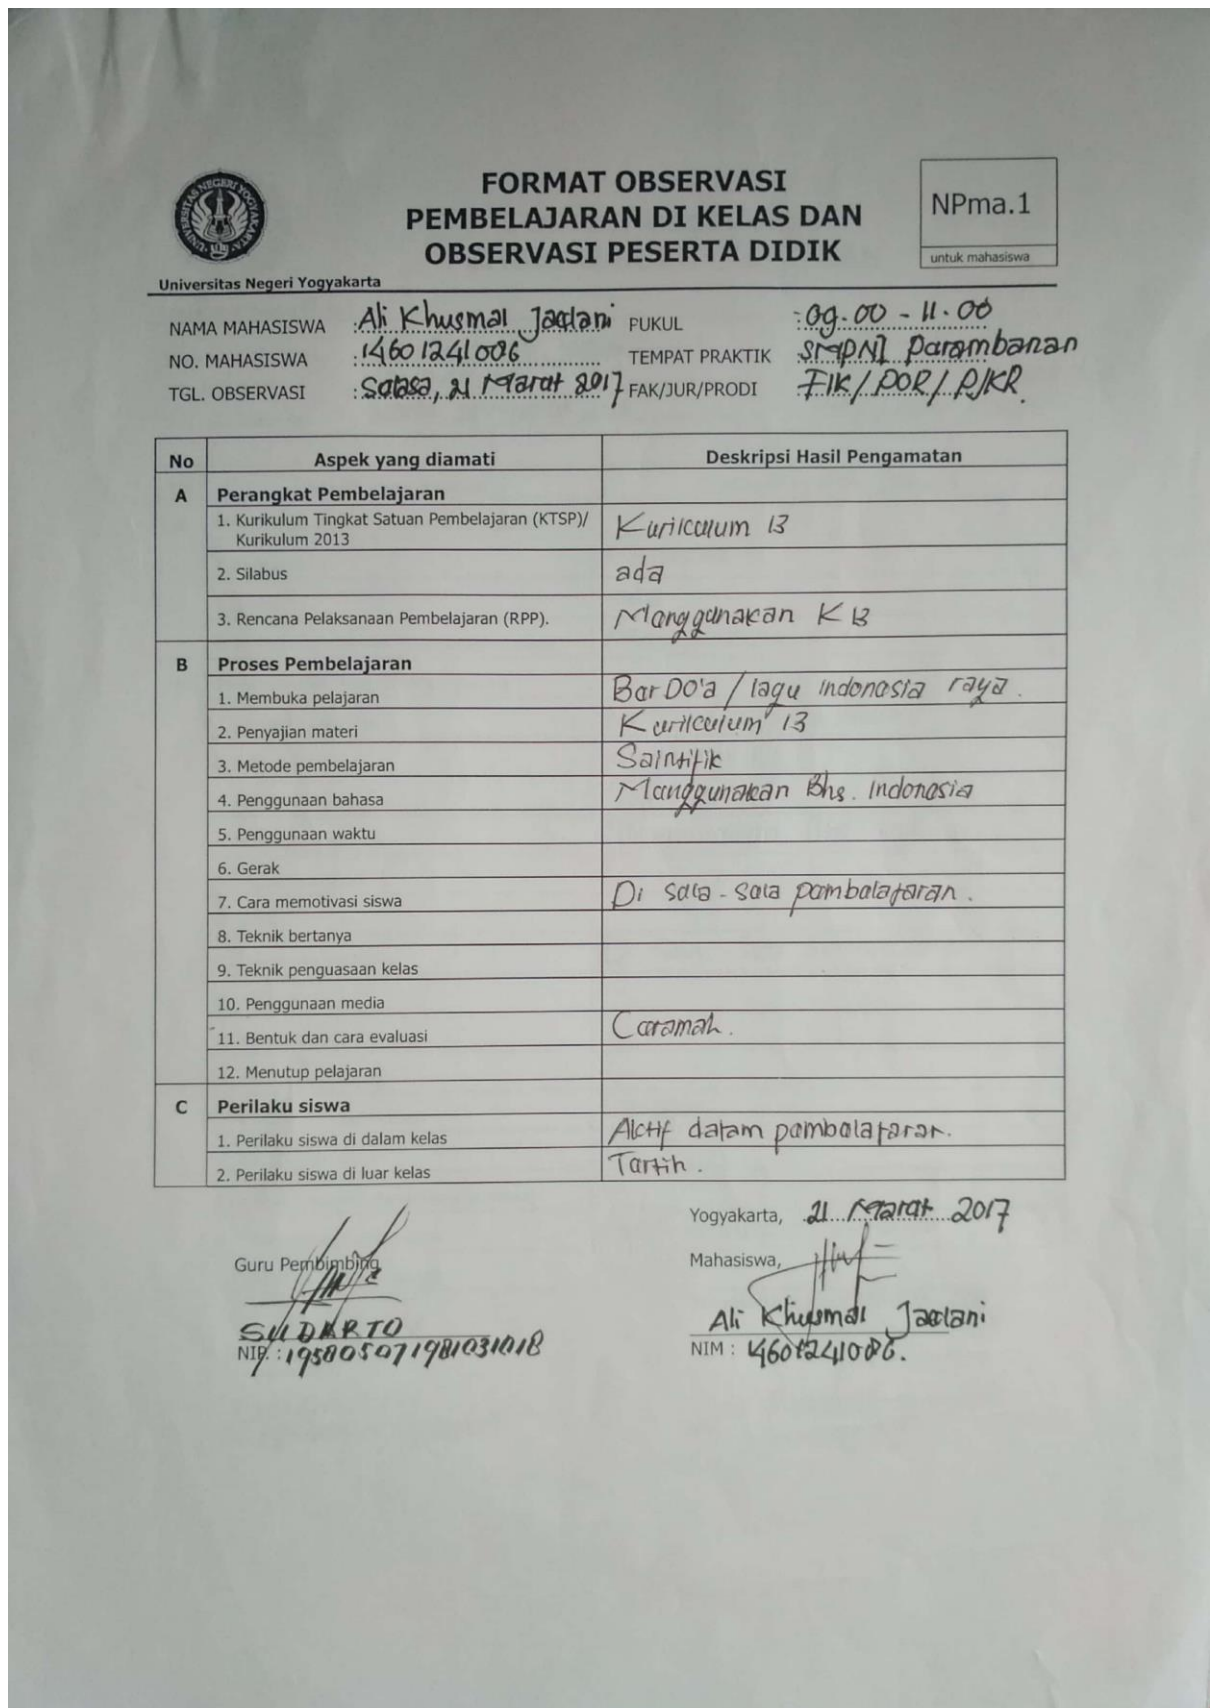 FORMAT OBSERVASI
PEMBELAJARAN DI KELAS DAN
OBSERVASI PESERTA DIDIK
NPma.1
untuk mahasiswa
UNIVERSITAS NEGERI YOGYAKARTA
Universitas Negeri Yogyakarta
NAMA MAHASISWA : Ali Khusmal Jaelani PUKUL : 09.00 - 11.00
NO. MAHASISWA : 14601241086 TEMPAT PRAKTIK SMPN1 Perambanan
TGL. OBSERVASI : Selasa, 21 Maret 2017 FAK/JUR/PRODI FIK / POR / PJKR
No Aspek yang diamati Deskripsi Hasil Pengamatan
A Perangkat Pembelajaran
1. Kurikulum Tingkat Satuan Pembelajaran (KTSP)/
Kurikulum 2013 Kurikulum 13
2. Silabus ada
3. Rencana Pelaksanaan Pembelajaran (RPP). Menggunakan K 13
B Proses Pembelajaran
1. Membuka pelajaran BerDo'a / lagu indonesia raya.
2. Penyajian materi Kurikulum 13
3. Metode pembelajaran Saintifik
4. Penggunaan bahasa Menggunakan Bhs. Indonesia
5. Penggunaan waktu
6. Gerak
7. Cara memotivasi siswa Di sela - sela pembelajaran.
8. Teknik bertanya
9. Teknik penguasaan kelas
10. Penggunaan media
11. Bentuk dan cara evaluasi Ceramah.
12. Menutup pelajaran
C Perilaku siswa
1. Perilaku siswa di dalam kelas Aktif dalam pembelajaran.
2. Perilaku siswa di luar kelas Tertib.
Yogyakarta, 21 Maret 2017
Guru Pembimbing Mahasiswa,
SUDARTO Ali Khusmal Jaelani
NIP. : 195805071981031018 NIM : 14601241086.